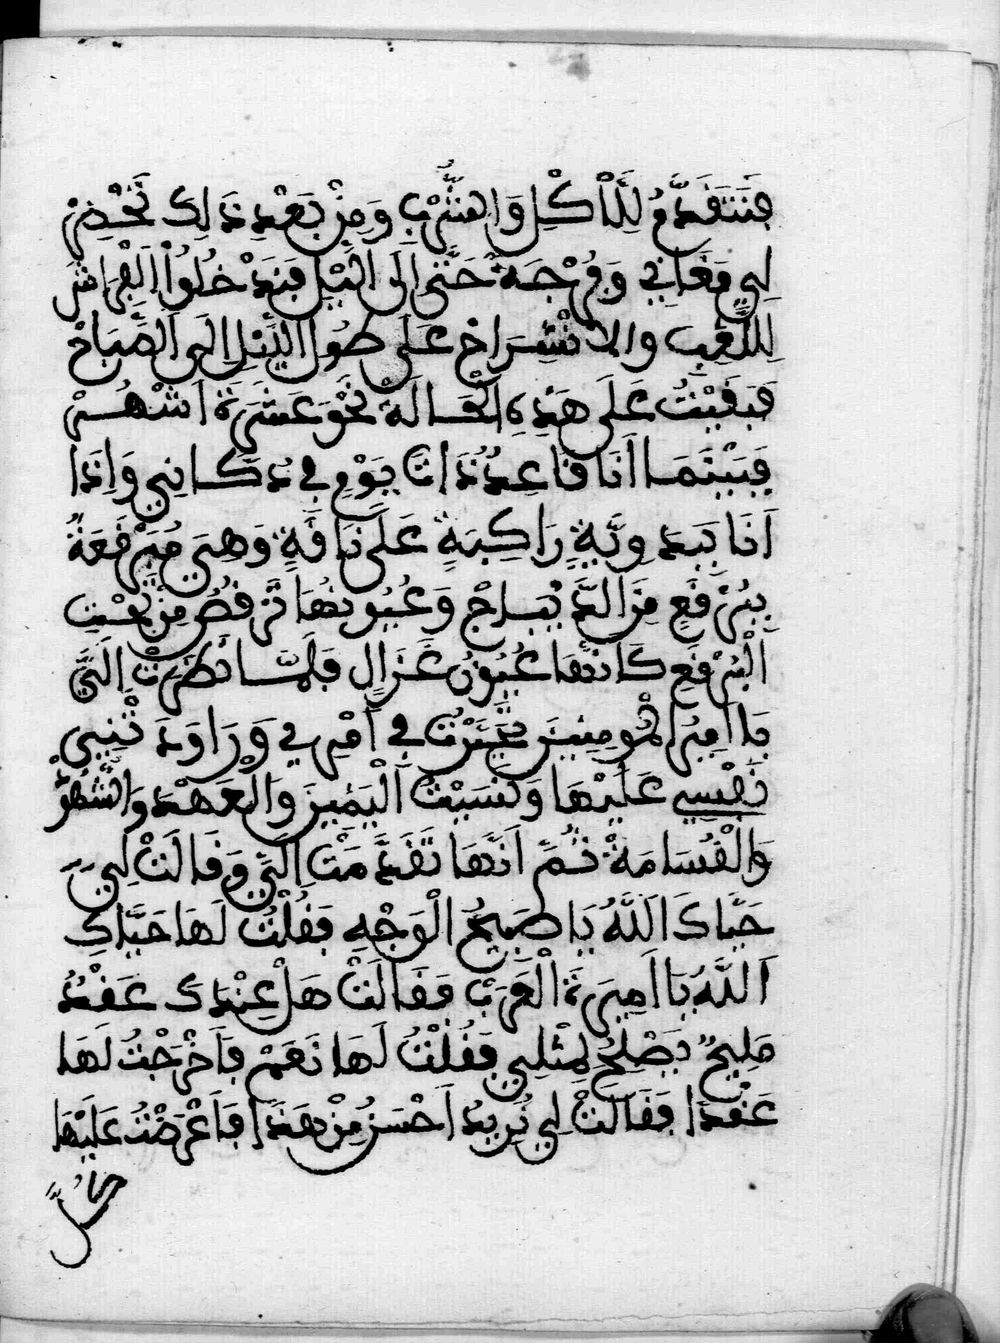 فَنَتَقَدَّمُ لِلْأَكْلِ وَالشُّرْبِ وَمِنْ بَعْدِ ذَلِكَ نَحْضِرْ
لِي مَغَانِي وَفُرْجَة حَتَّى إِلَى اللَّيْلِ فَنَدْخُلُواْ الْفِرَاشَ
لِلَّعِبِ وَالاَنْشِرَاحِ عَلَى طُولِ اللَّيْلِ إِلَى الصَّبَاحْ
فَبَقَيْتُ عَلَى هَذِهِ الْحَالَة نَحْوَ عَشَرَة اَشْهُـرْ
فَبَيْنَمَـا اَنَا قَاعِدٌ ذَاتَ يَوْمٍ فِي دُكَّانِي وَإِذَا
اَنَا بَبَدَوِيَّةٍ رَاكِبَةٍ عَلَى نَاقَةٍ وَهِيَ مُبَرْقَعَةٌ
بِبُرْقَعٍ مِنَ الدِّيبَـاجْ وَعُيُونُهَا تَرْقُصُ مِنْ تَحْتِ
الْبُرْقَعِ كَانَّهَا عُيُونُ غَزَالٍ فَلَمَّـا نَظَرَتْ إِلَيَّ
يَا اَمِيرَ الْمُومِنِينَ تَحَيَّرْتُ فِي اَمْرِي وَرَاوَدَتْنِي
نَفْسِي عَلَيْهَا وَنَسَيْتُ الْيَمِينَ وَالْعَهْدَ وَالشُّرُطْ
وَالْقُسَامَةْ ثُمَّ اَنَّهَا تَقَدَّمَتْ اِلَيَّ وَقَالَتْ لِي
حَيَّاكَ اللَّهُ يَا صَبِيحَ الْوَجْهِ فَقُلْتُ لَهَا حَيَّاكِ
اللَّهُ يَا اَمِيرَةَ الْعَرَبْ فَقَالَتْ هَلْ عِنْدَكَ عَقْدٌ
مَلِيحٌ يَصْلِحُ لِمِثْلِي فَقُلْتُ لَهَا نَعَمْ فَاَخْرَجْتُ لَهَا
عَقْدًا فَقَالَتْ لِي نُرِيدُ اَحْسَنُ مِنْ هَذَا فَاَعْرَضْتُ عَلَيْهَا